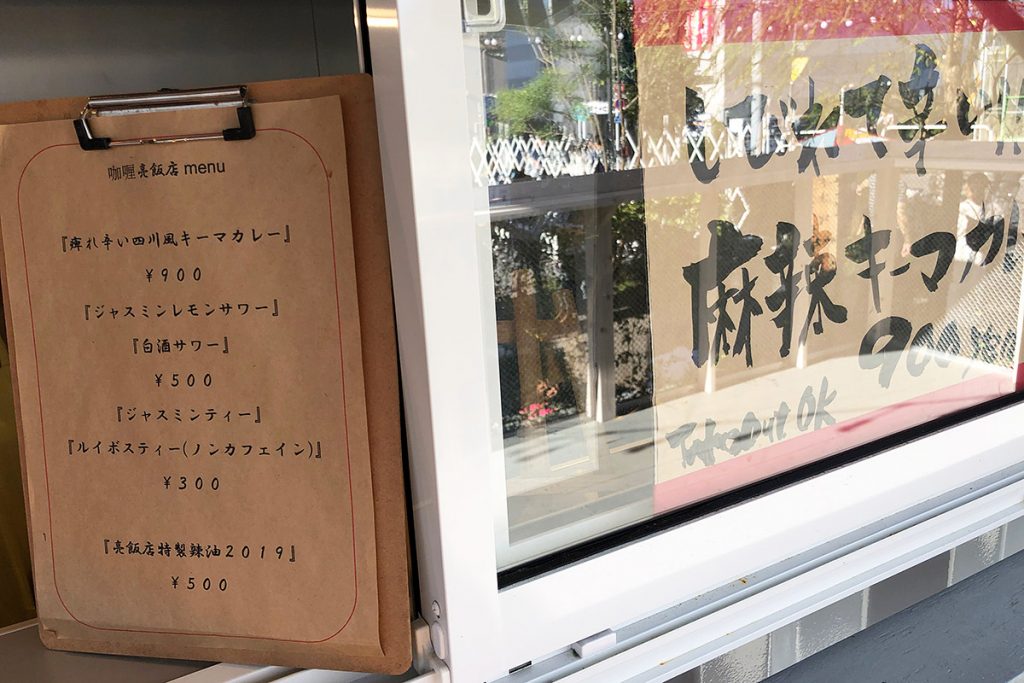 咖喱亮飯店 menu
『痺れ辛い四川風キーマカレー』
￥900
『ジャスミンレモンサワー』
『白酒サワー』
￥500
『ジャスミンティー』
『ルイボスティー(ノンカフェイン)』
￥300
『亮飯店特製辣油2019』
￥500
しびれて辛い
麻辣キーマカ
900
TakeOut OK